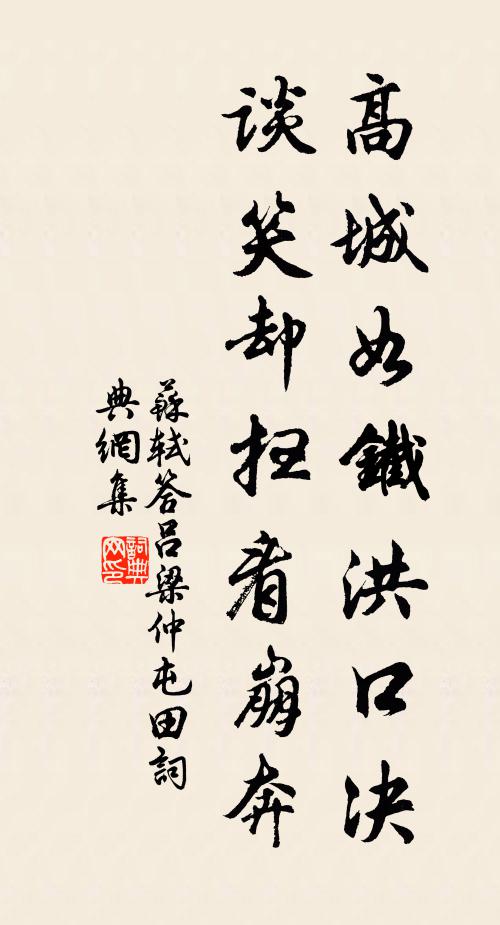 高城如鐵洪口決
談笑却扫看崩奔
蘇軾答呂梁仲屯田詞
典網集
詞典网印